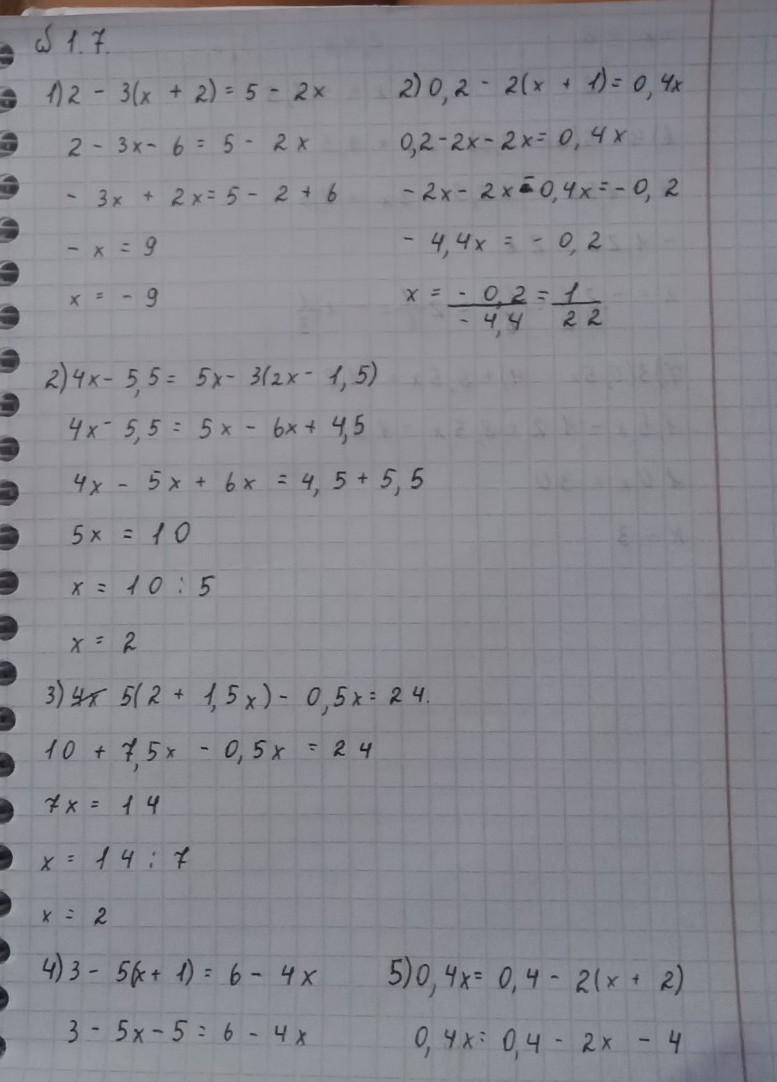 № 1.7.
1) 2 - 3(x + 2) = 5 - 2x
2 - 3x - 6 = 5 - 2x
- 3x + 2x = 5 - 2 + 6
- x = 9
x = - 9
2) 0,2 - 2(x + 1) = 0,4x
0,2 - 2x - 2x = 0,4x
- 2x - 2x - 0,4x = - 0,2
- 4,4x = - 0,2
x = - 0,2 / - 4,4 = 1 / 22
2) 4x - 5,5 = 5x - 3(2x - 1,5)
4x - 5,5 = 5x - 6x + 4,5
4x - 5x + 6x = 4,5 + 5,5
5x = 10
x = 10 : 5
x = 2
3) 4x 5(2 + 1,5x) - 0,5x = 24.
10 + 7,5x - 0,5x = 24
7x = 14
x = 14 : 7
x = 2
4) 3 - 5(x + 1) = 6 - 4x
3 - 5x - 5 = 6 - 4x
5) 0,4x = 0,4 - 2(x + 2)
0,4x = 0,4 - 2x - 4